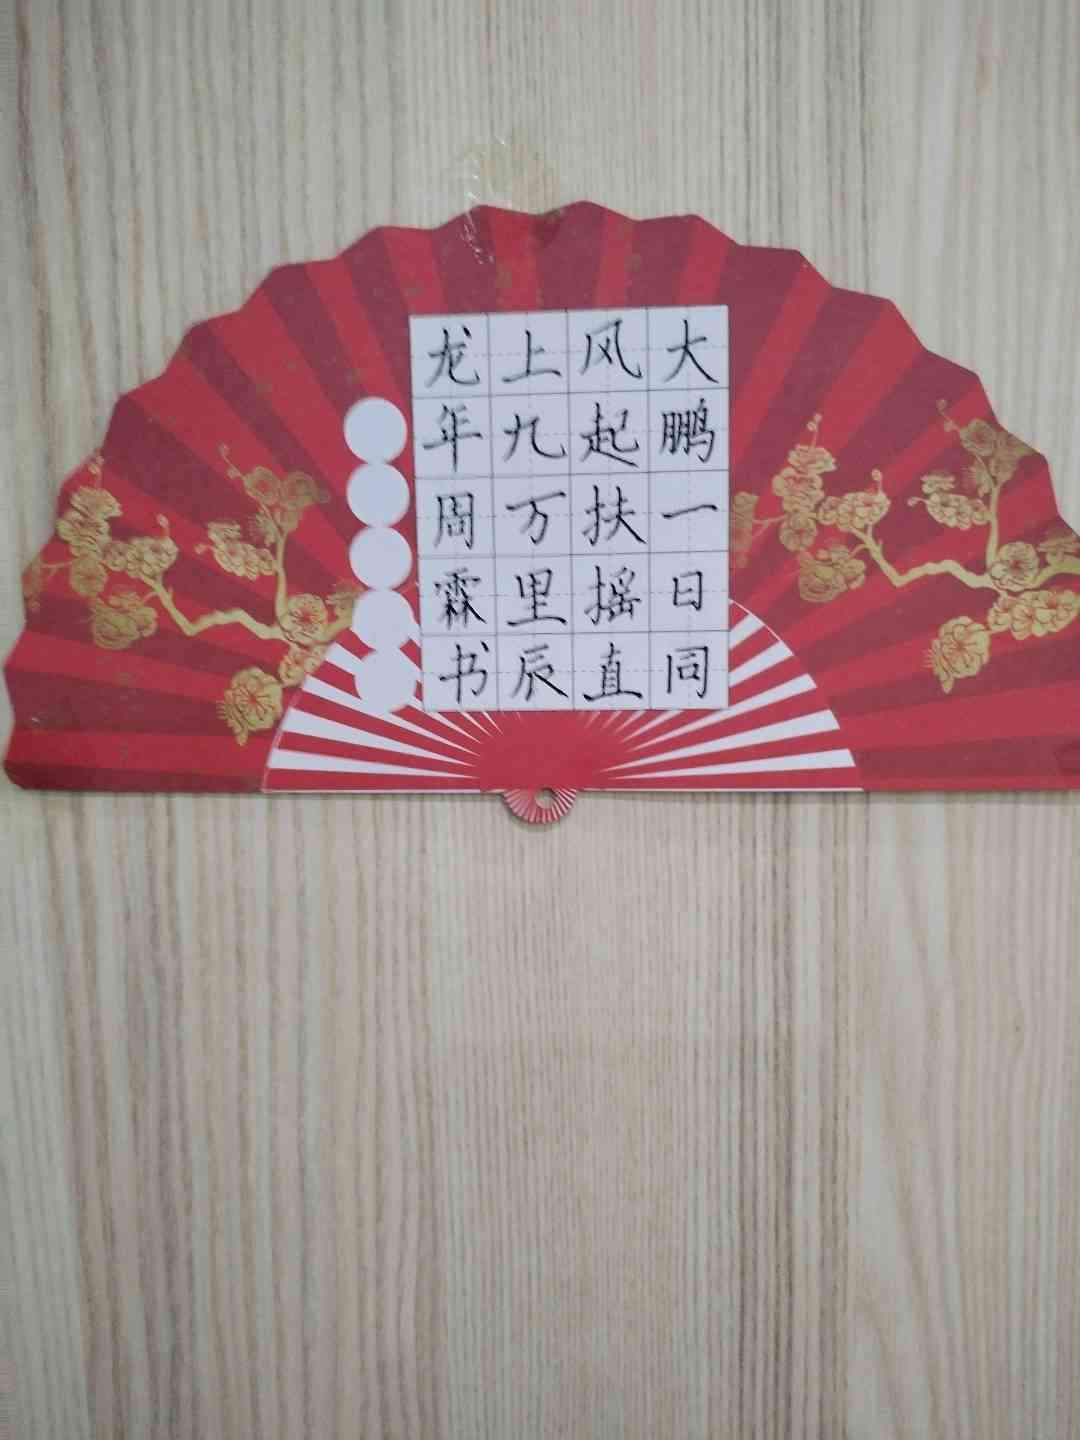 大鹏一日同
风起扶摇直
上九万里辰
龙年周霖书